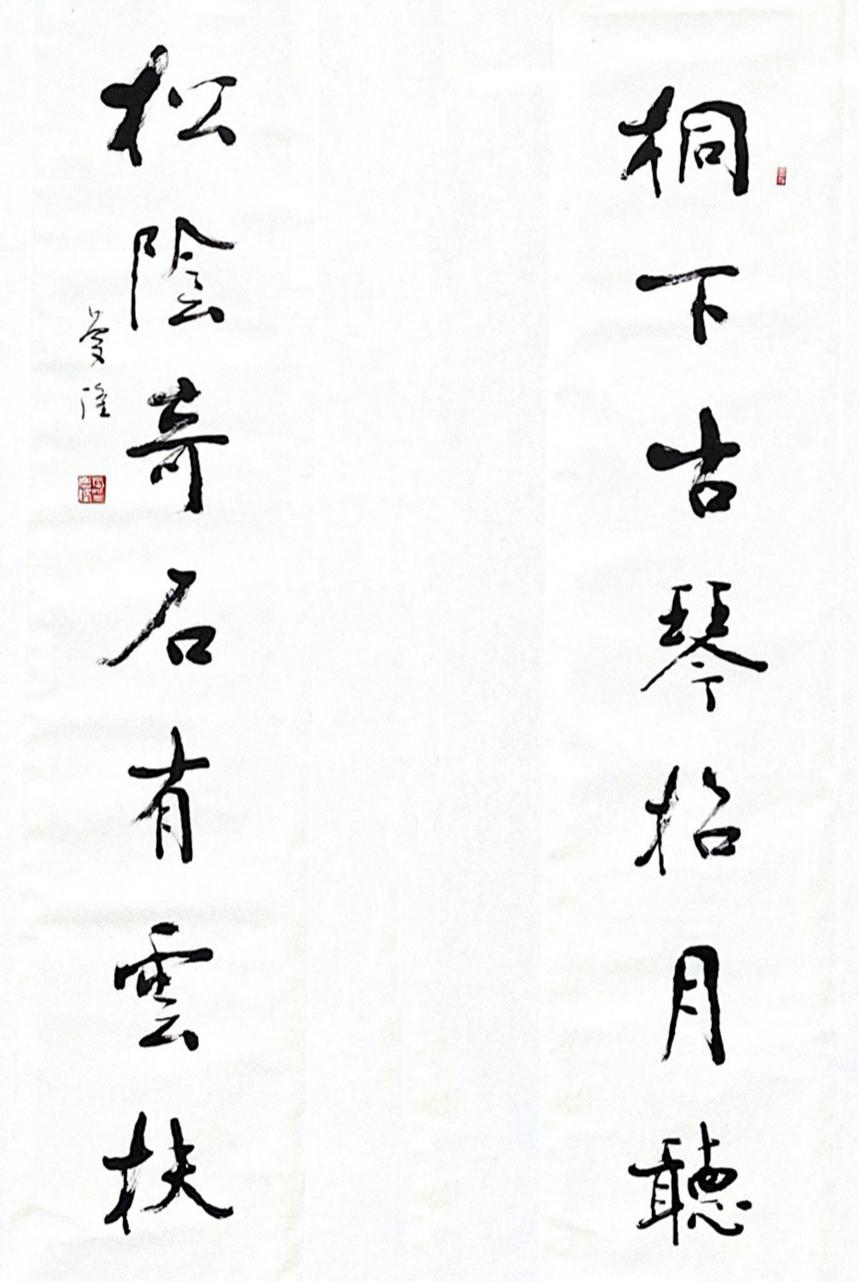 桐下古琴招月聽
松陰奇石有雲扶